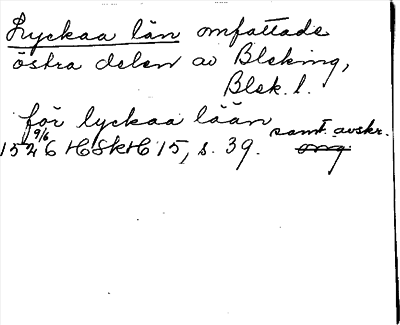 Lyckaa län omfattade
östra delen av Bleking,
Blek. l.
för lyckaa lään
samt. avskr.
1526 9/6 HSkH 15, s. 39. orig